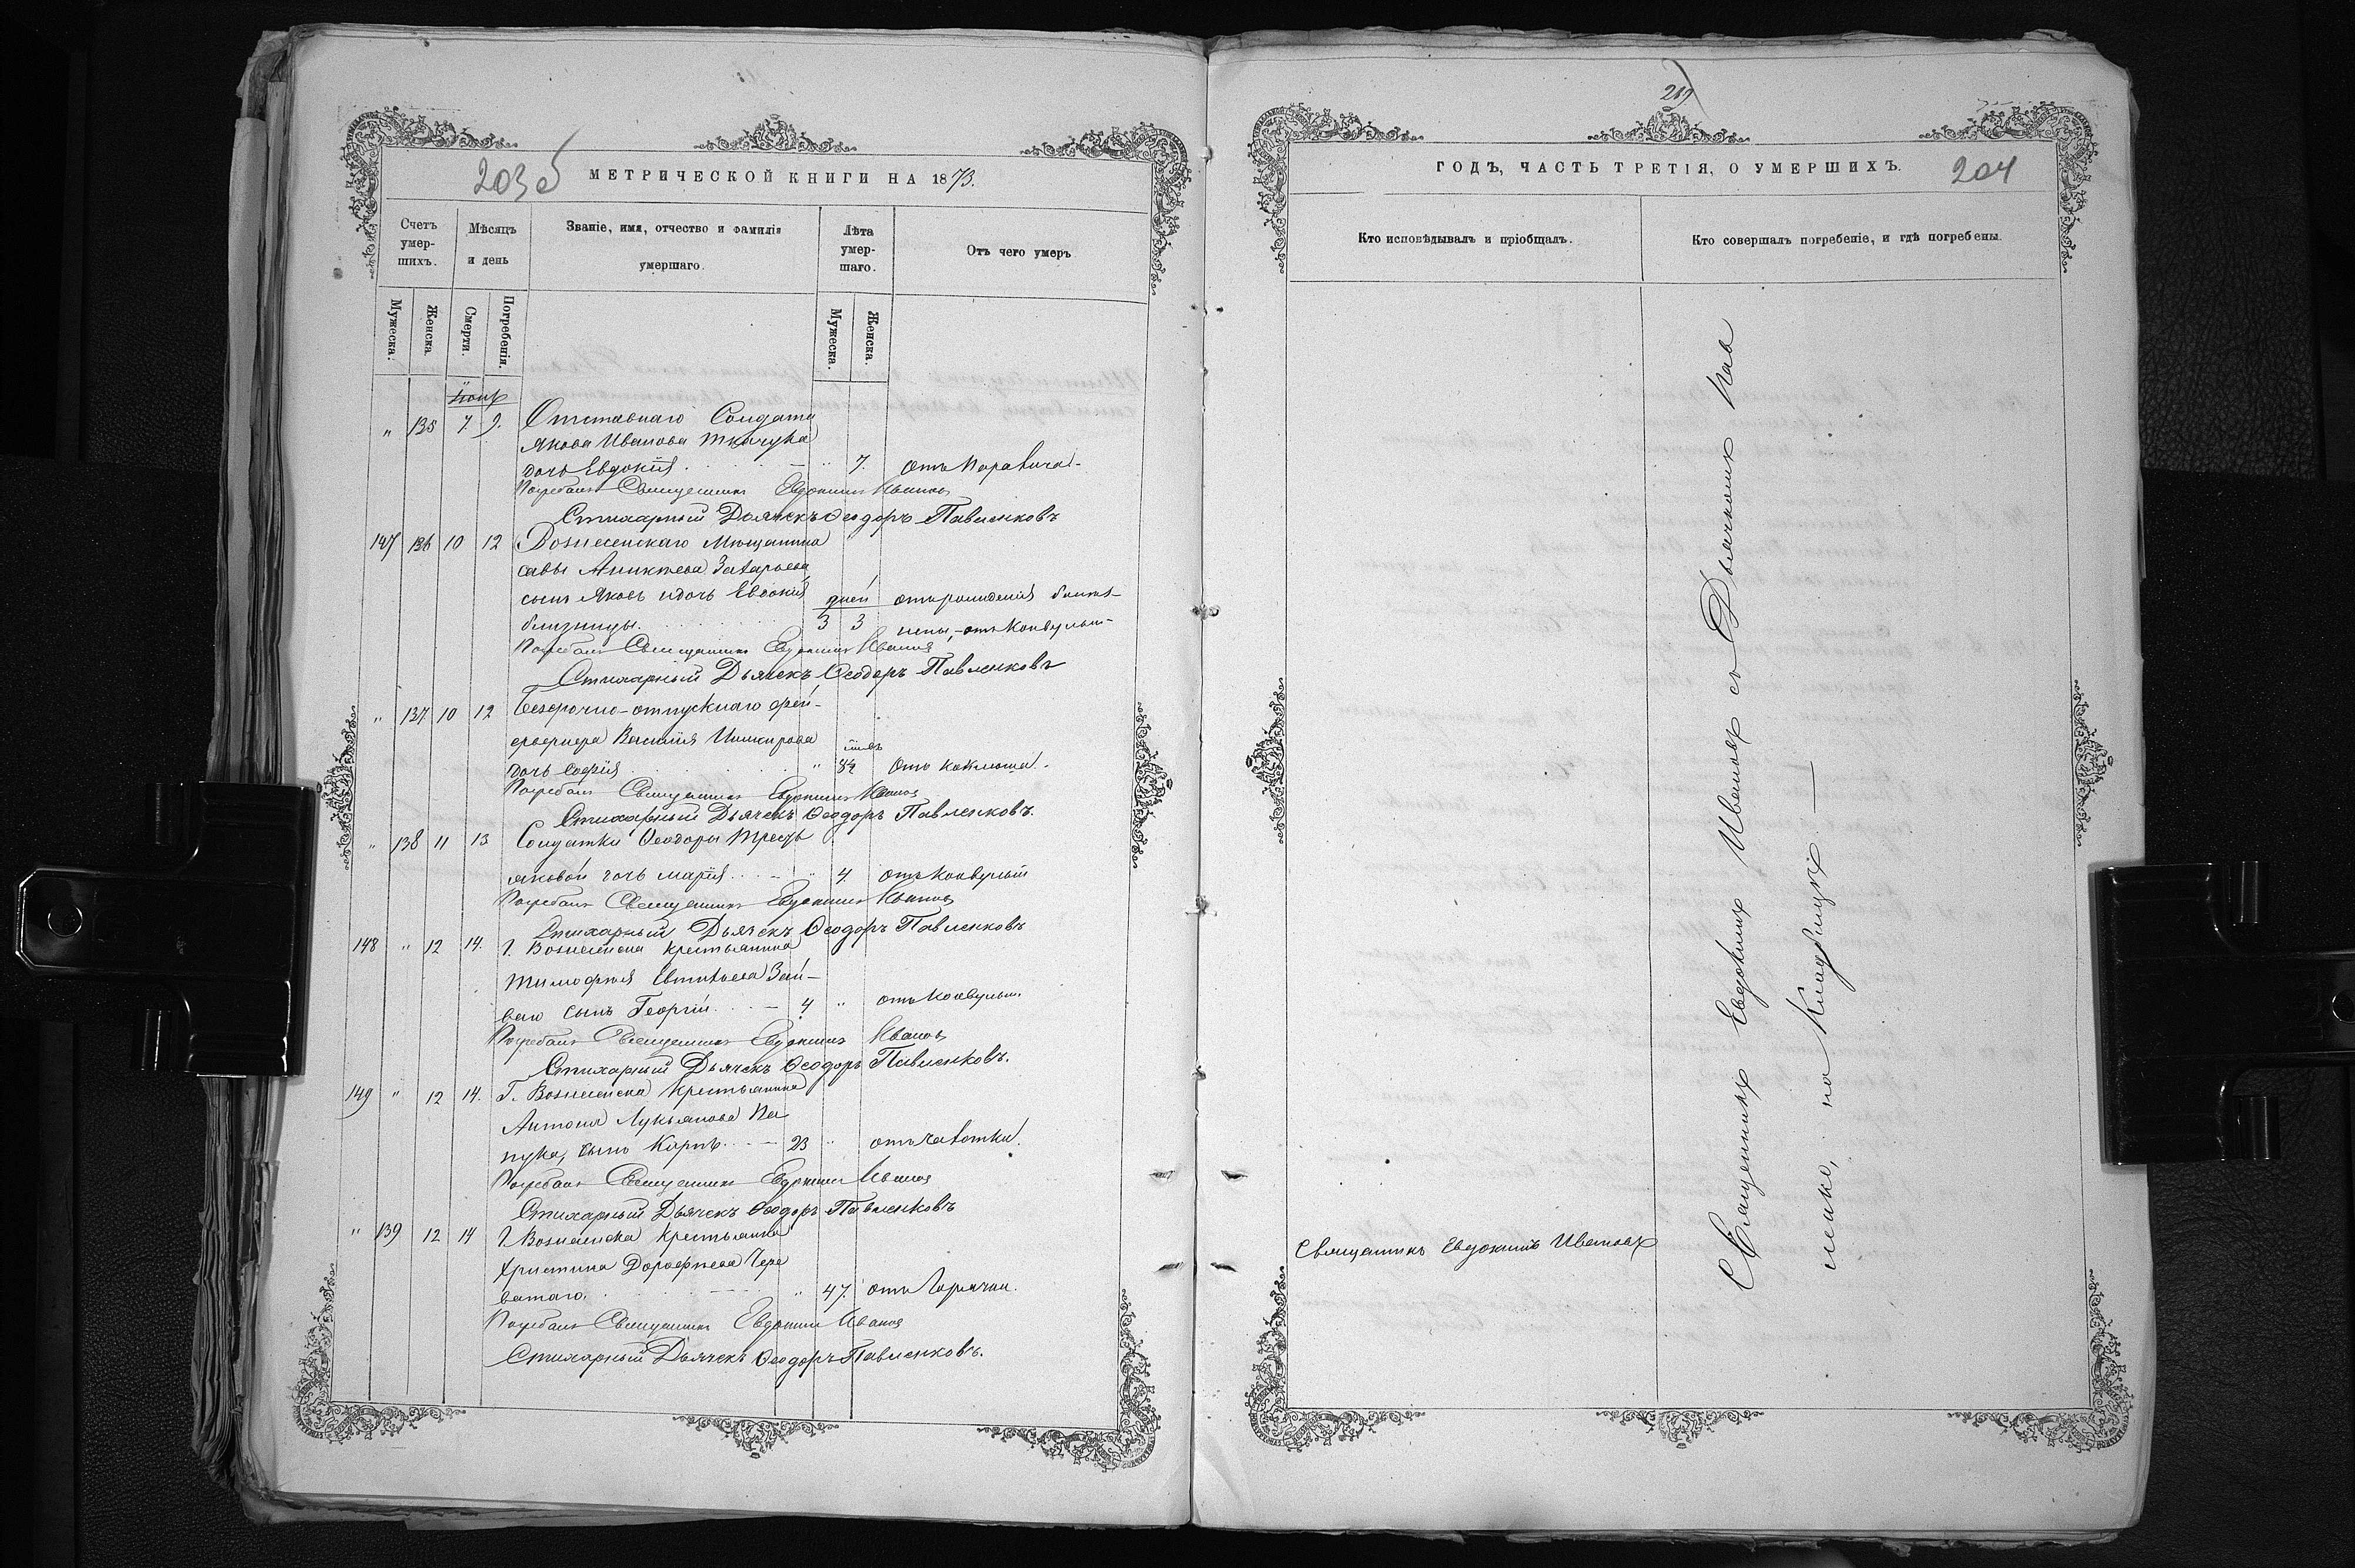 203 об
МЕТРИЧЕСКОЙ КНИГИ НА 1873.
Счетъ умер-шихъ.
Мѣсяцъ и день
Званіе, имя, отчество и фамилія умершаго.
Лѣта умер-шаго.
Отъ чего умеръ
Мужеска.
Женска.
Смерти.
Погребенія.
Мужеска.
Женска.
" 135 7. 9. Отставнаго Солдата
Якова Иванова Ткачука
дочь Евдокія " 7.
Погребалъ Священникъ Евдокимъ Ивановъ
Стихарный Дьячекъ Ѳеодоръ Павленковъ
147 136 10 12 Вознесенскаго Мѣщанина
Савы Аникѣева Захарьева
сынъ Яковъ и дочь Евдокія дней отъ рожденія
близнецы 3 3
Погребалъ Священникъ Евдокимъ Ивановъ
Стихарный Дьячекъ Ѳеодоръ Павленковъ
" 137 10 12 Безсрочно-отпускнаго фей-
ерверкера Василія
дочь Софія " 8½ Отъ коклюша.
Погребалъ Священникъ Евдокимъ Ивановъ
Стихарный Дьячекъ Ѳеодоръ Павленковъ.
" 138 11 13 Солдатки Ѳеодоры
яковой дочь Марія " 4 отъ конвульсій
Погребалъ Священникъ Евдокимъ Ивановъ
Стихарный Дьячекъ Ѳеодоръ Павленковъ
148 " 12 14. Г. Вознесенска крестьянина
Тимофея Евтихьева Зай-
ваго сынъ Георгій 4 " отъ конвульс.
Погребалъ Священникъ Евдокимъ Ивановъ
Стихарный Дьячекъ Ѳеодоръ Павленковъ.
149 " 12 14. Г. Вознесенска крестьянина
Антона Лукьянова
сынъ Карпъ 23 " отъ чахотки.
Погребалъ Священникъ Евдокимъ Ивановъ
Стихарный Дьячекъ Ѳеодоръ Павленковъ
" 139 12 14 Г. Вознесенска крестьянка
Христина Дорофеева Чере
ватаго. " 47. отъ Горячки.
Погребалъ Священникъ Евдокимъ Ивановъ
Стихарный Дьячекъ Ѳеодоръ Павленковъ.
219
ГОДЪ, ЧАСТЬ ТРЕТІЯ, О УМЕРШИХЪ.
204
Кто исповѣдывалъ и пріобщалъ.
Кто совершалъ погребеніе, и гдѣ погребены.
Священникъ Евдокимъ Ивановъ
Священникъ Евдокимъ Ивановъ съ Дьячкомъ Пав
ленко, на Кладбищѣ —